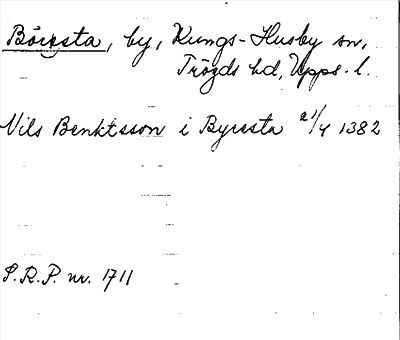 Börsta, by, Kungs-Husby sn,
Trögds hd, Upps. l.
Nils Benktsson i Byrsta 21/4 1382
S.R.P. nr. 1711